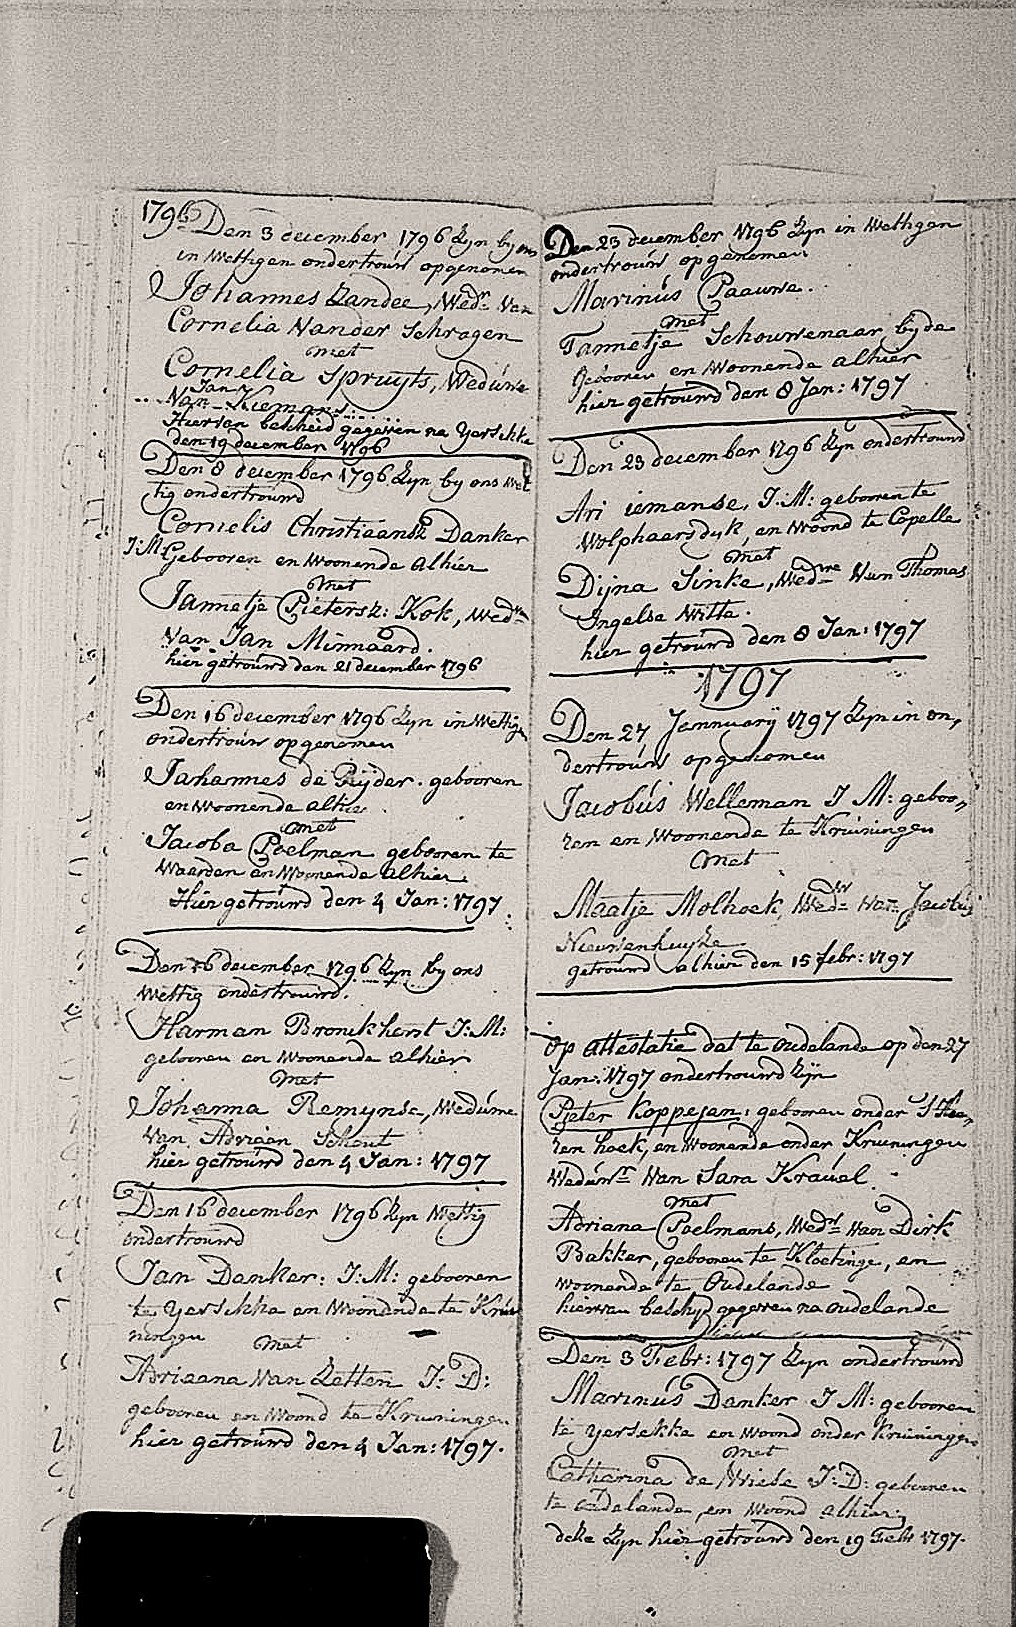 1796 Den 3 december 1796 Zyn by ons
in Wettigen ondertrouw opgenomen
Johannes Zandee, Wedr. Van
Cornelia Vander Schragen
met
Cornelia Spruyts, Weduwe
Jan
Van Kiemans
Hiervan bescheid gegeven na Yersekke
den 19 december 1796
Den 8 december 1796 Zyn by ons Wet
tig ondertrouwd
Cornelis Christiaansz Danker
J:M: Gebooren en Woonende alhier
Met
Jannetje Pietersz: Kok, Wedwe
Van Jan Minnaard.
hier getrouwd den 21 december 1796
Den 16 december 1796 Zyn in Wettigen
ondertrouw opgenomen
Johannes de Rijder. gebooren
en Woonende alhier
met
Jacoba Poelman gebooren te
Waarden en Woonende alhier.
Hier getrouwd den 4 Jan: 1797
Den 16 december 1796 Zyn by ons
Wettig ondertrouwd.
Harman Bronkhorst J:M:
gebooren en Woonende alhier
Met
Johanna Remynse, Weduwe
Van Adriaan Schout
hier getrouwd den 4 Jan: 1797
Den 16 december 1796 Zyn Wettig
ondertrouwd
Jan Danker: J:M: gebooren
te Yersekke en Woonende te Krui
ningen
Met
Adriaana Van Zetten J: D:
gebooren en Woond te Kruiningen
hier getrouwd den 4 Jan: 1797.
Den 23 december 1796 Zyn in Wettigen
ondertrouw opgenomen
Marinus Paauwe.
met
Tannetje Schouwenaar byde
Gebooren en Woonende alhier
hier getrouwd den 8 Jan: 1797
Den 23 december 1796 Zyn ondertrouwd
Ari iemanse, J:M: gebooren te
Wolphaarsdyk, en Woond te Capelle
met
Dijna Sinke, Wedwe Van Thomas
Ingelse Witte.
hier getrouwd den 8 Jan: 1797
1797
Den 27 Jannuarij 1797 Zyn in on,
dertrouw opgenomen
Jacobus Welleman J M: geboo,
ren en Woonende te Kruiningen
Met
Maatje Molhoek, Wedw Van Jacobus
Nieuwenhuyse
getrouwd alhier den 15 febr: 1797
Op attestatie dat te Oudelande op den 27
Jan: 1797 ondertrouwd Zyn
Pieter Koppejan: gebooren onder S Hee,
ren hoek, en Woonende onder Kruiningen
Weduwr Van Sara Krauel.
met
Adriana Poelmans, Wedr Van Dirk
Bakker, gebooren te Kloetinge, en
Woonende te Oudelande
hiervan beschyd gegeven na Oudelande
Den 3 Febr: 1797 Zyn ondertrouwd
Marinus Danker J M: gebooren
te Yersekke en Woond onder Kruiningen
met
Catharina de Wiebe J: D: gebooren
te oudelande, en Woond alhier;
deke Zyn hier getrouwd den 19 Febr 1797.